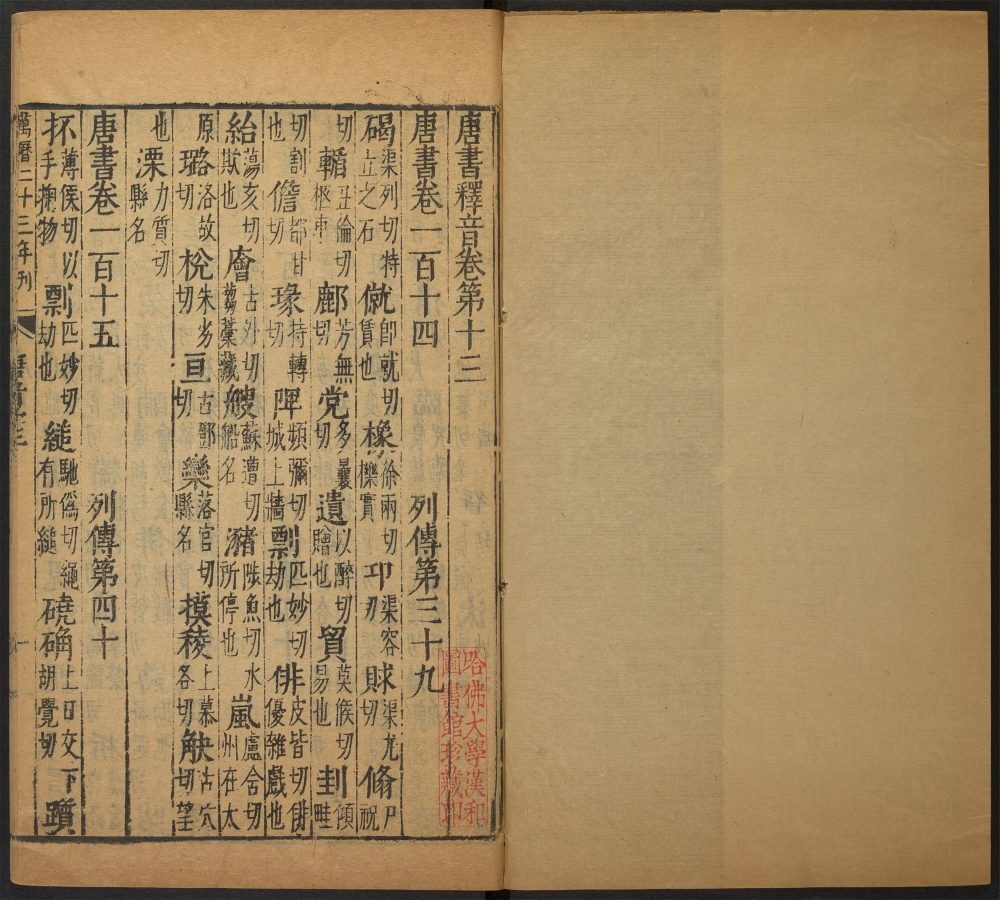 唐書釋音卷第十三
唐書卷一百十四 列傳第三十九
碣渠列切特立之石 僦即就切賃也 橡徐兩切櫟實 邛渠容切 賕渠尤切 脩尸祝
切 輴丑倫切柩車 鄜芳無切 党多曩切 遺以醉切贈也 貿莫候切易也 刲傾畦
切割也 儋都甘切 瑑持轉切 陴頻彌切城上牆 剽匹妙切劫也 俳皮皆切俳優雜戲也
紿蕩亥切欺也 廥古外切芻藁藏 艘蘇遭切船名 瀦陟魚切水所停也 嵐盧含切州在太
原 璐洛故切 梲朱劣切 亘古鄧切 欒落官切縣名 摸稜上慕各切 觖古穴切望
也 溧力質切縣名
唐書卷一百十五 列傳第四十
抔薄侯切以手掬物 剽匹妙切劫也 縋馳偽切繩有所縋 磽确上口交下胡覺切 躓
萬曆二十三年刊
哈佛大學漢和圖書館珍藏印